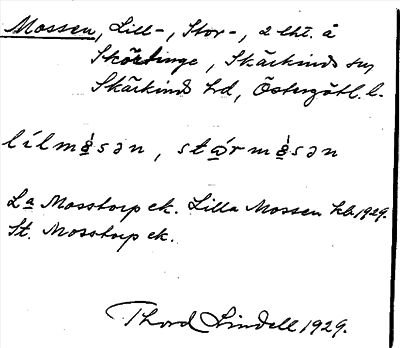 Mossen, Lill-, Stor-, 2 lht. å
Skärlinge, Skärkinds sn,
Skärkinds hd, Östergötl. l.
lílmò̲sən, stá̲rmò̲sən
La Mosstorp ek. Lilla Mossen kb 1929.
St. Mosstorp ek.
Thord Lindell 1929.